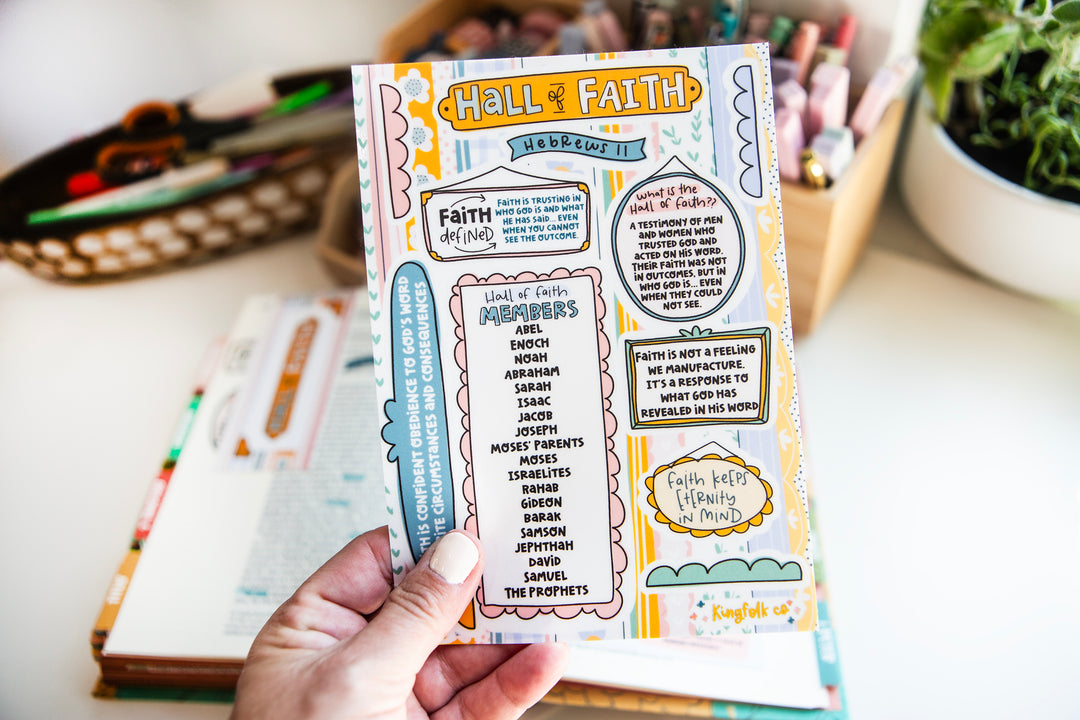 Hall of FAITH
Hebrews 11
FAITH
defined
FAITH IS TRUSTING IN
WHO GOD IS AND WHAT
HE HAS SAID... EVEN
WHEN YOU CANNOT
SEE THE OUTCOME.
What is the
Hall of faith??
A TESTIMONY OF MEN
AND WOMEN WHO
TRUSTED GOD AND
ACTED ON HIS WORD.
THEIR FAITH WAS NOT
IN OUTCOMES, BUT IN
WHO GOD IS... EVEN
WHEN THEY COULD
NOT SEE.
IS CONFIDENT OBEDIENCE TO GOD'S WORD
CIRCUMSTANCES AND CONSEQUENCES
Hall of faith
MEMBERS
ABEL
ENOCH
NOAH
ABRAHAM
SARAH
ISAAC
JACOB
JOSEPH
MOSES' PARENTS
MOSES
ISRAELITES
RAHAB
GIDEON
BARAK
SAMSON
JEPHTHAH
DAVID
SAMUEL
THE PROPHETS
FAITH IS NOT A FEELING
WE MANUFACTURE.
IT'S A RESPONSE TO
WHAT GOD HAS
REVEALED IN HIS WORD
faith keeps
eternity
in mind
Kingfolk co
HALL of FAITH